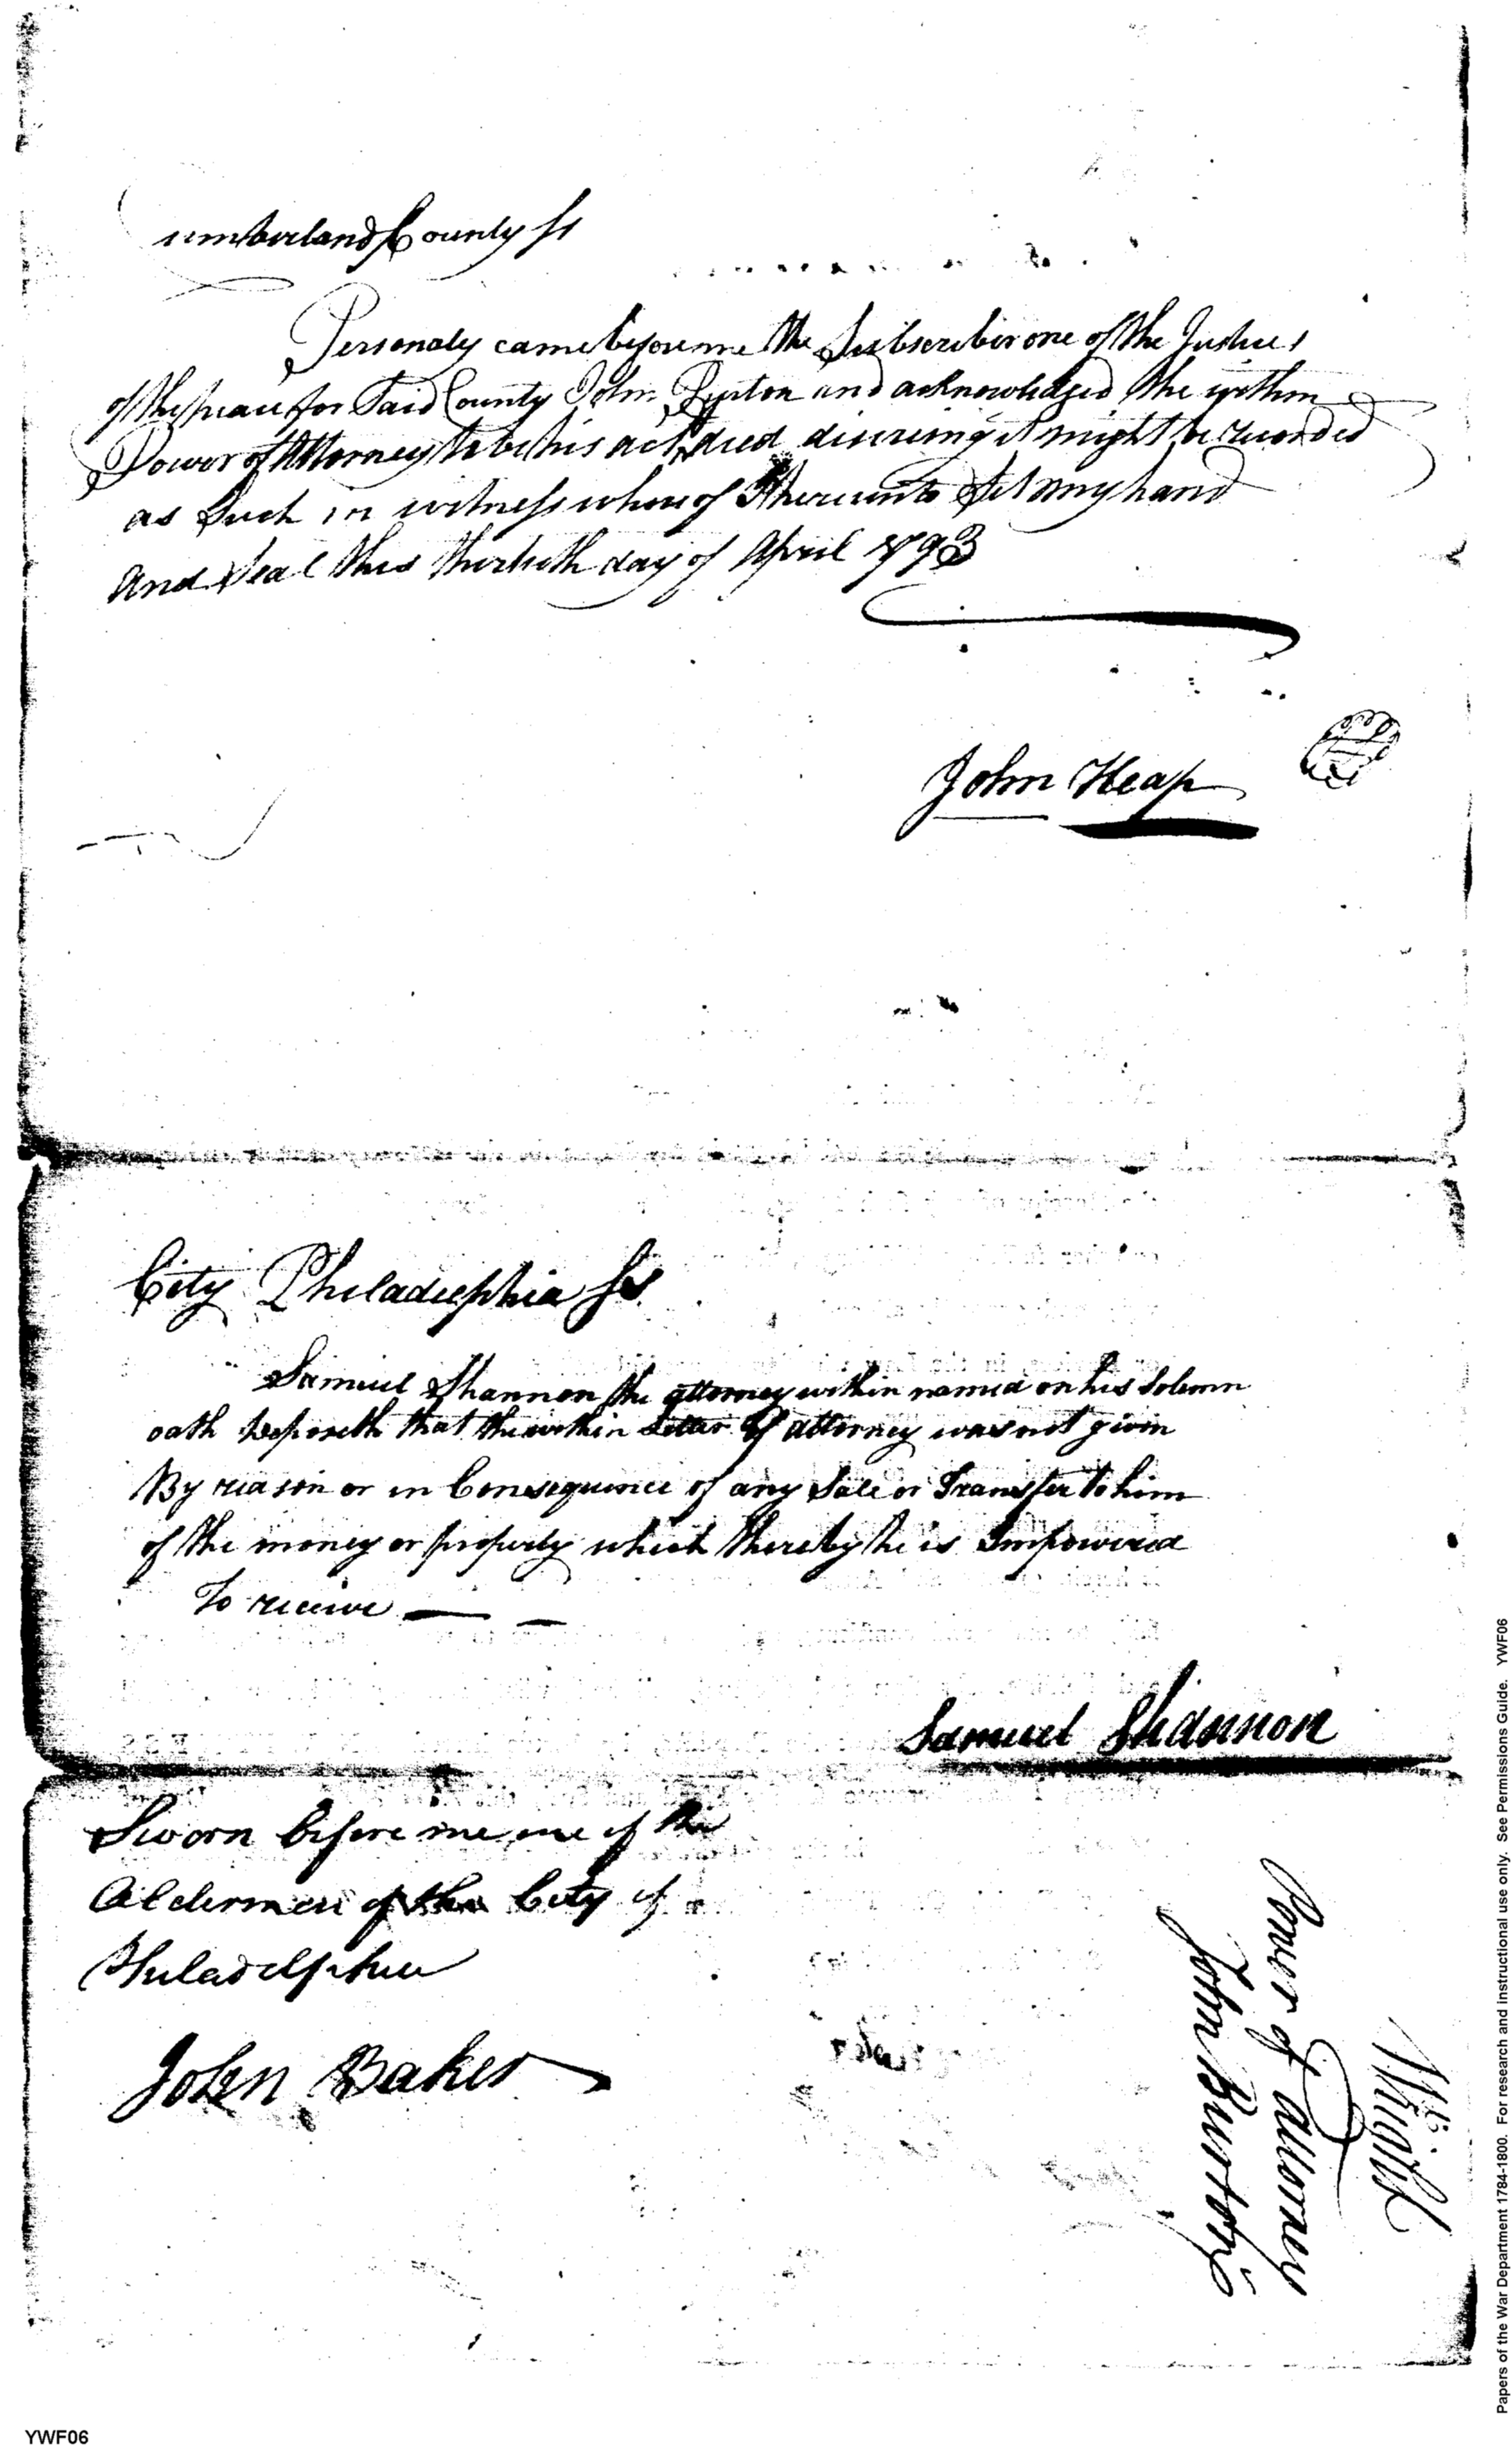 Cumberland County Ss
Personaly came before me the Subscriber one of the Justices
of the peace for Said County John Burton and acknowledged the within
Power of Attorney to be his act & deed desireing it might be recorded
as Such in witness whereof I hereunto Set my hand
And Seal this thirtieth day of April 1793
John Heap
City Philadelphia Ss
Samuel Shannon the attorney within named on his Solemn
oath deposeth that the within Letter of attorney was not given
By reason or in Consequence of any Sale or Transfer to him
of the money or property which thereby he is Impowered
To receive
Samuel Shannon
Sworn before me one of the
Aldermen of the City of
Philadelphia
John Baker
Power of attorney
John Burton
Papers of the War Department 1784-1800. For research and instructional use only. See Permissions Guide. YWF06
YWF06